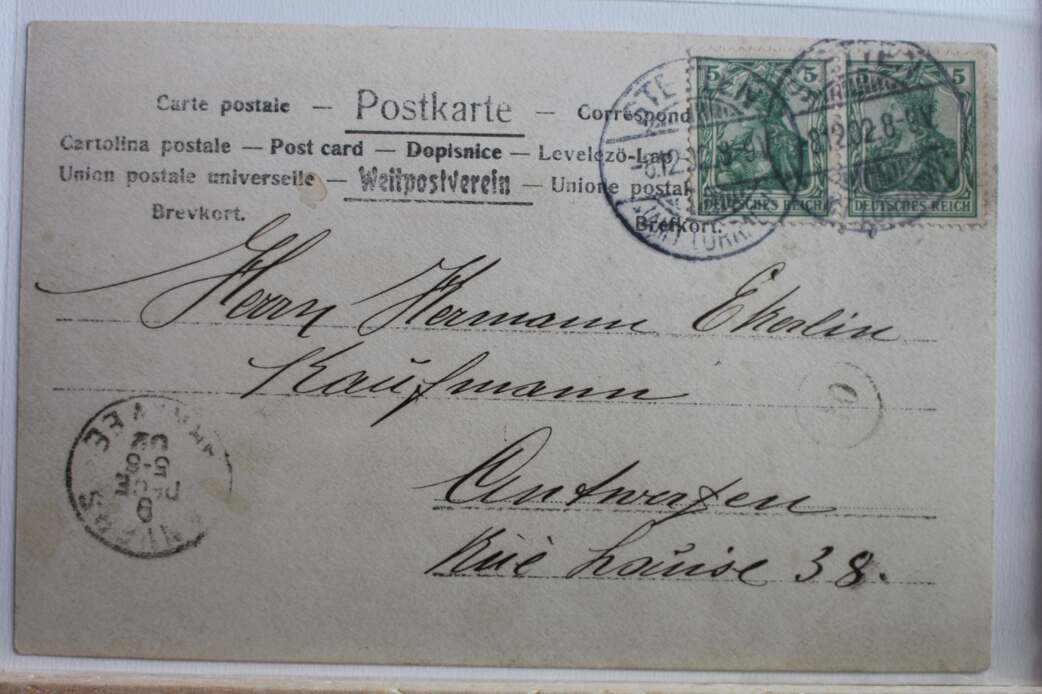 Carte postale — Postkarte — Correspond
Cartolina postale — Post card — Dopisnice — Levelező-Lap
Union postale universelle — Weltpostverein — Unione postal
Brevkort. Brefkort.
5 5 5 5
DEUTSCHES REICH DEUTSCHES REICH
STETTIN
8.12.02. 8-9V
Herrn Hermann Ekerlin
Kaufmann
Antwerpen
Rue Louise 38.
ANVERS
ARRIVEE